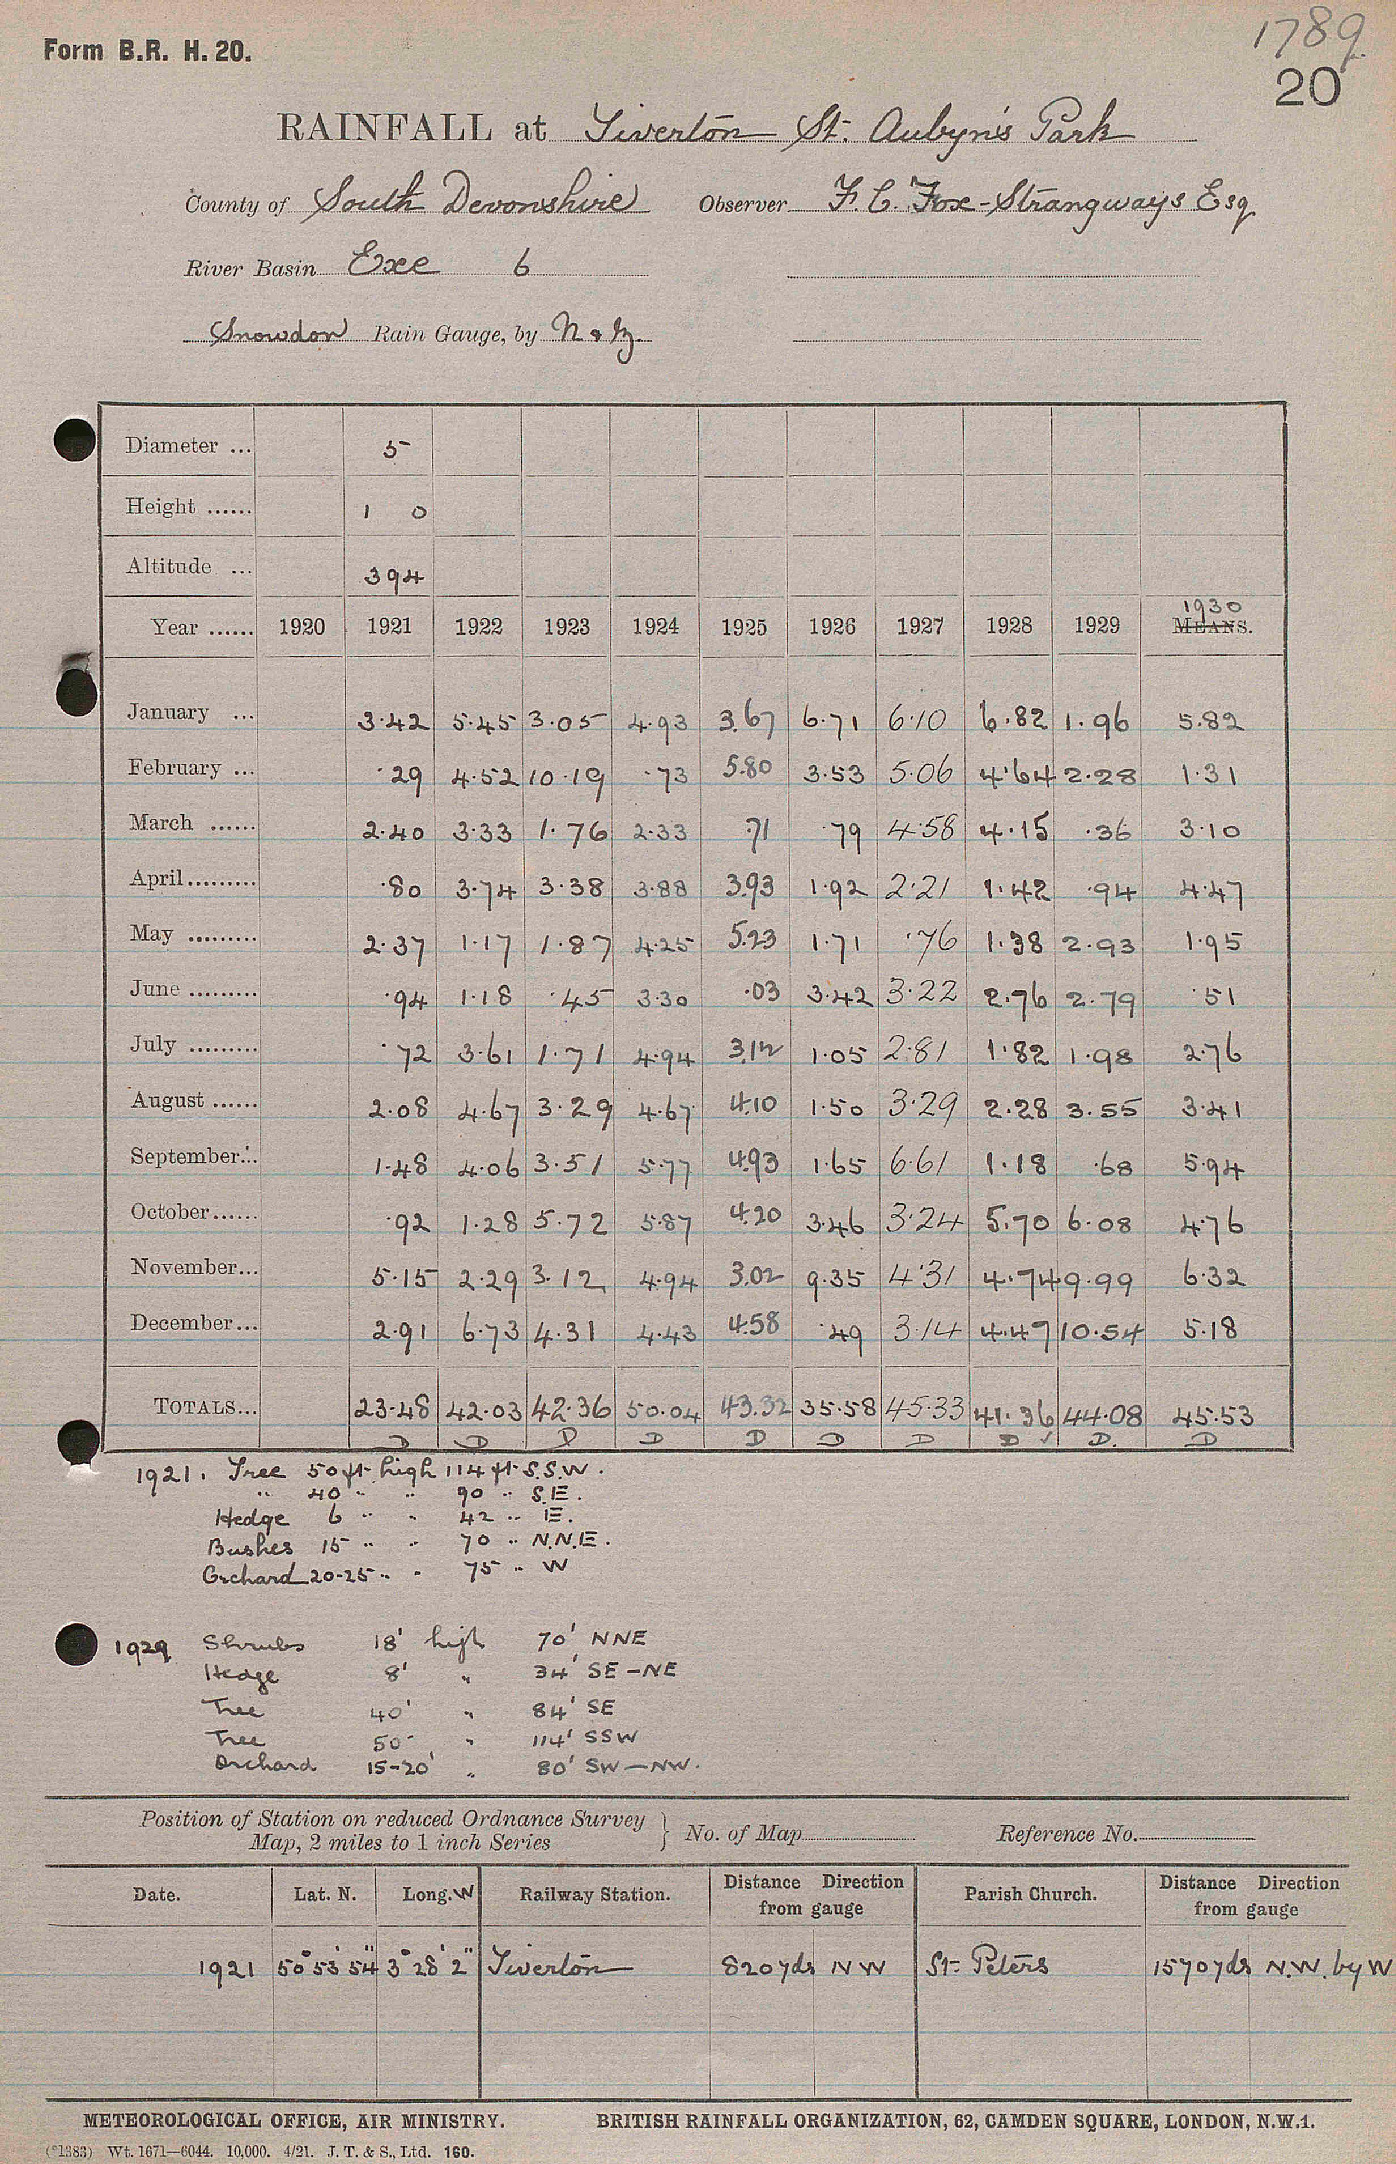 Form B.R. H. 20.
1789
20
RAINFALL at Tiverton St. Aubyn's Park
County of South Devonshire Observer F. C. Fox-Strangways Esq
River Basin Exe 6
Snowdon Rain Gauge, by N & Z.
Diameter ... 5
Height ...... 1 0
Altitude ... 394
1930
Year ...... 1920 1921 1922 1923 1924 1925 1926 1927 1928 1929 MEANS.
January ... 3.42 5.45 3.05 4.93 3.67 6.71 6.10 6.82 1.96 5.82
February ... .29 4.52 10.19 .73 5.80 3.53 5.06 4.64 2.28 1.31
March ...... 2.40 3.33 1.76 2.33 .71 .79 4.58 4.15 .36 3.10
April ......... .80 3.74 3.38 3.88 3.93 1.92 2.21 1.42 .94 4.47
May ......... 2.37 1.17 1.87 4.25 5.23 1.71 .76 1.38 2.93 1.95
June ......... .94 1.18 .45 3.30 .03 3.42 3.22 2.76 2.79 .51
July ......... .72 3.61 1.71 4.94 3.12 1.05 2.81 1.82 1.98 2.76
August ...... 2.08 4.67 3.29 4.67 4.10 1.50 3.29 2.28 3.55 3.41
September... 1.48 4.06 3.51 5.77 4.93 1.65 6.61 1.18 .68 5.94
October...... .92 1.28 5.72 5.87 4.20 3.46 3.24 5.70 6.08 4.76
November... 5.15 2.29 3.12 4.94 3.02 9.35 4.31 4.74 9.99 6.32
December... 2.91 6.73 4.31 4.43 4.58 .49 3.14 4.47 10.54 5.18
TOTALS... 23.48 42.03 42.36 50.04 43.32 35.58 45.33 41.36 44.08 45.53
D D D D D D D D ✓ D. D
1921. Tree 50 ft high 114 ft S.S.W.
" 40 " " 90 " S.E.
Hedge 6 " " 42 " E.
Bushes 15 " " 70 " N.N.E.
Orchard 20-25 " " 75 " W
1929 Shrubs 18' high 70' NNE
Hedge 8' " 34' SE-NE
Tree 40' " 84' SE
Tree 50' " 114' SSW
Orchard 15-20' " 80' SW-NW.
Position of Station on reduced Ordnance Survey
Map, 2 miles to 1 inch Series } No. of Map Reference No.
Date. Lat. N. Long. W Railway Station. Distance from gauge Direction Parish Church. Distance from gauge Direction
1921 50° 53' 54" 3° 28' 2" Tiverton 820 yds NW St. Peters 1570 yds N.W. by W
METEOROLOGICAL OFFICE, AIR MINISTRY. BRITISH RAINFALL ORGANIZATION, 62, CAMDEN SQUARE, LONDON, N.W.1.
(*1383) Wt. 1671—6044. 10,000. 4/21. J. T. & S., Ltd. 160.